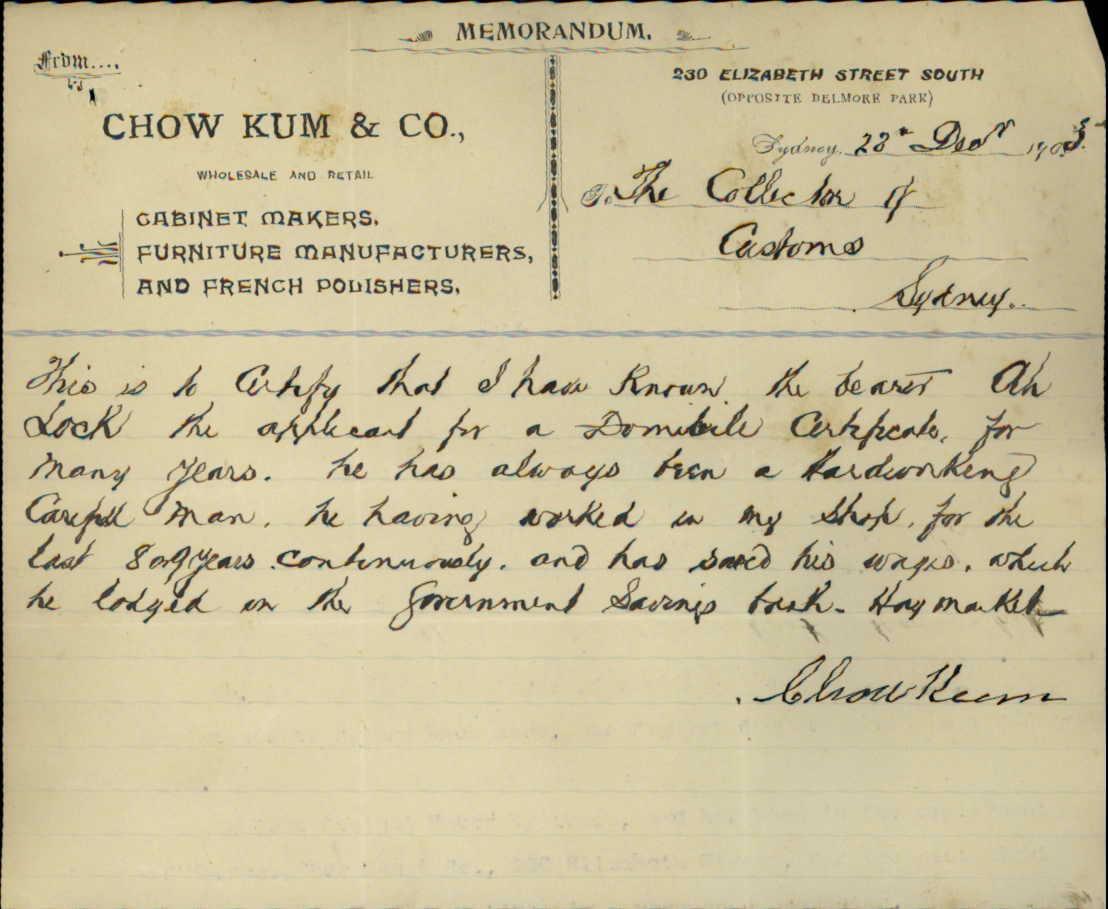 MEMORANDUM.
From....
230 ELIZABETH STREET SOUTH
(OPPOSITE BELMORE PARK)
CHOW KUM & CO.,
WHOLESALE AND RETAIL
CABINET MAKERS,
FURNITURE MANUFACTURERS,
AND FRENCH POLISHERS,
Sydney, 23rd Decr 1903
To The Collector of
Customs
Sydney.
This is to Certify that I have Known the bearer Ah
Lock the applicant for a Domicile Certificate, for
many years. he has always been a Hardworking
Careful man. he having worked in my Shop, for the
last 8 or 9 years continuously. and has saved his wages. which
he lodged in the Government Savings bank - Haymarket
Chow Kum